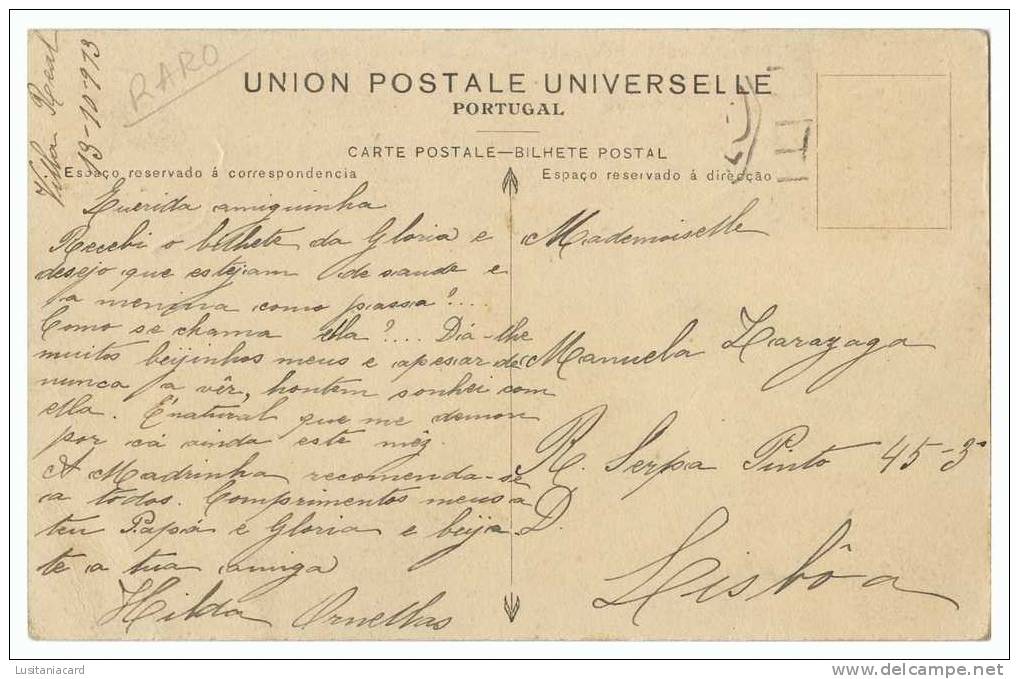 Villa Real
13-10-913
RARO
UNION POSTALE UNIVERSELLE
PORTUGAL
CARTE POSTALE—BILHETE POSTAL
Espaço reservado á correspondencia
Espaço reservado á direcção
Querida amiguinha
Recebi o bilhete da Gloria e
desejo que estejam de saude e
a menina como passa?....
Como se chama ella?.... Dá-lhe
muitos beijinhos meus e apesar de
nunca a vêr, hontem sonhei com
ella. É natural que me demore
por cá ainda este mêz.
A Madrinha recomenda-se
a todos. Comprimentos meus a
teu Papá e Gloria e beija
te a tua amiga
Hilda Ornellas
Mademoiselle
Manuela Zarazaga
R. Serpa Pinto 45-3º
D.
Lisbôa
Lusitaniacard
www.delcampe.net